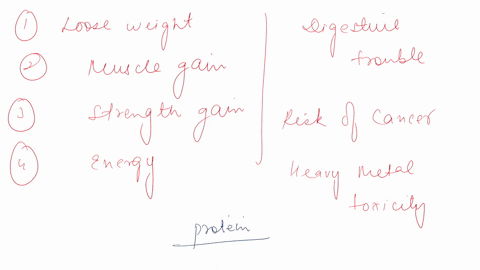 1 Loose weight
2 Muscle gain
3 Strength gain
4 Energy
Digestive
trouble
Risk of Cancer
Heavy Metal
toxicity
protein